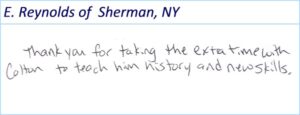 E. Reynolds of Sherman, NY
Thank you for taking the exta time with
Colton to teach him history and new skills.